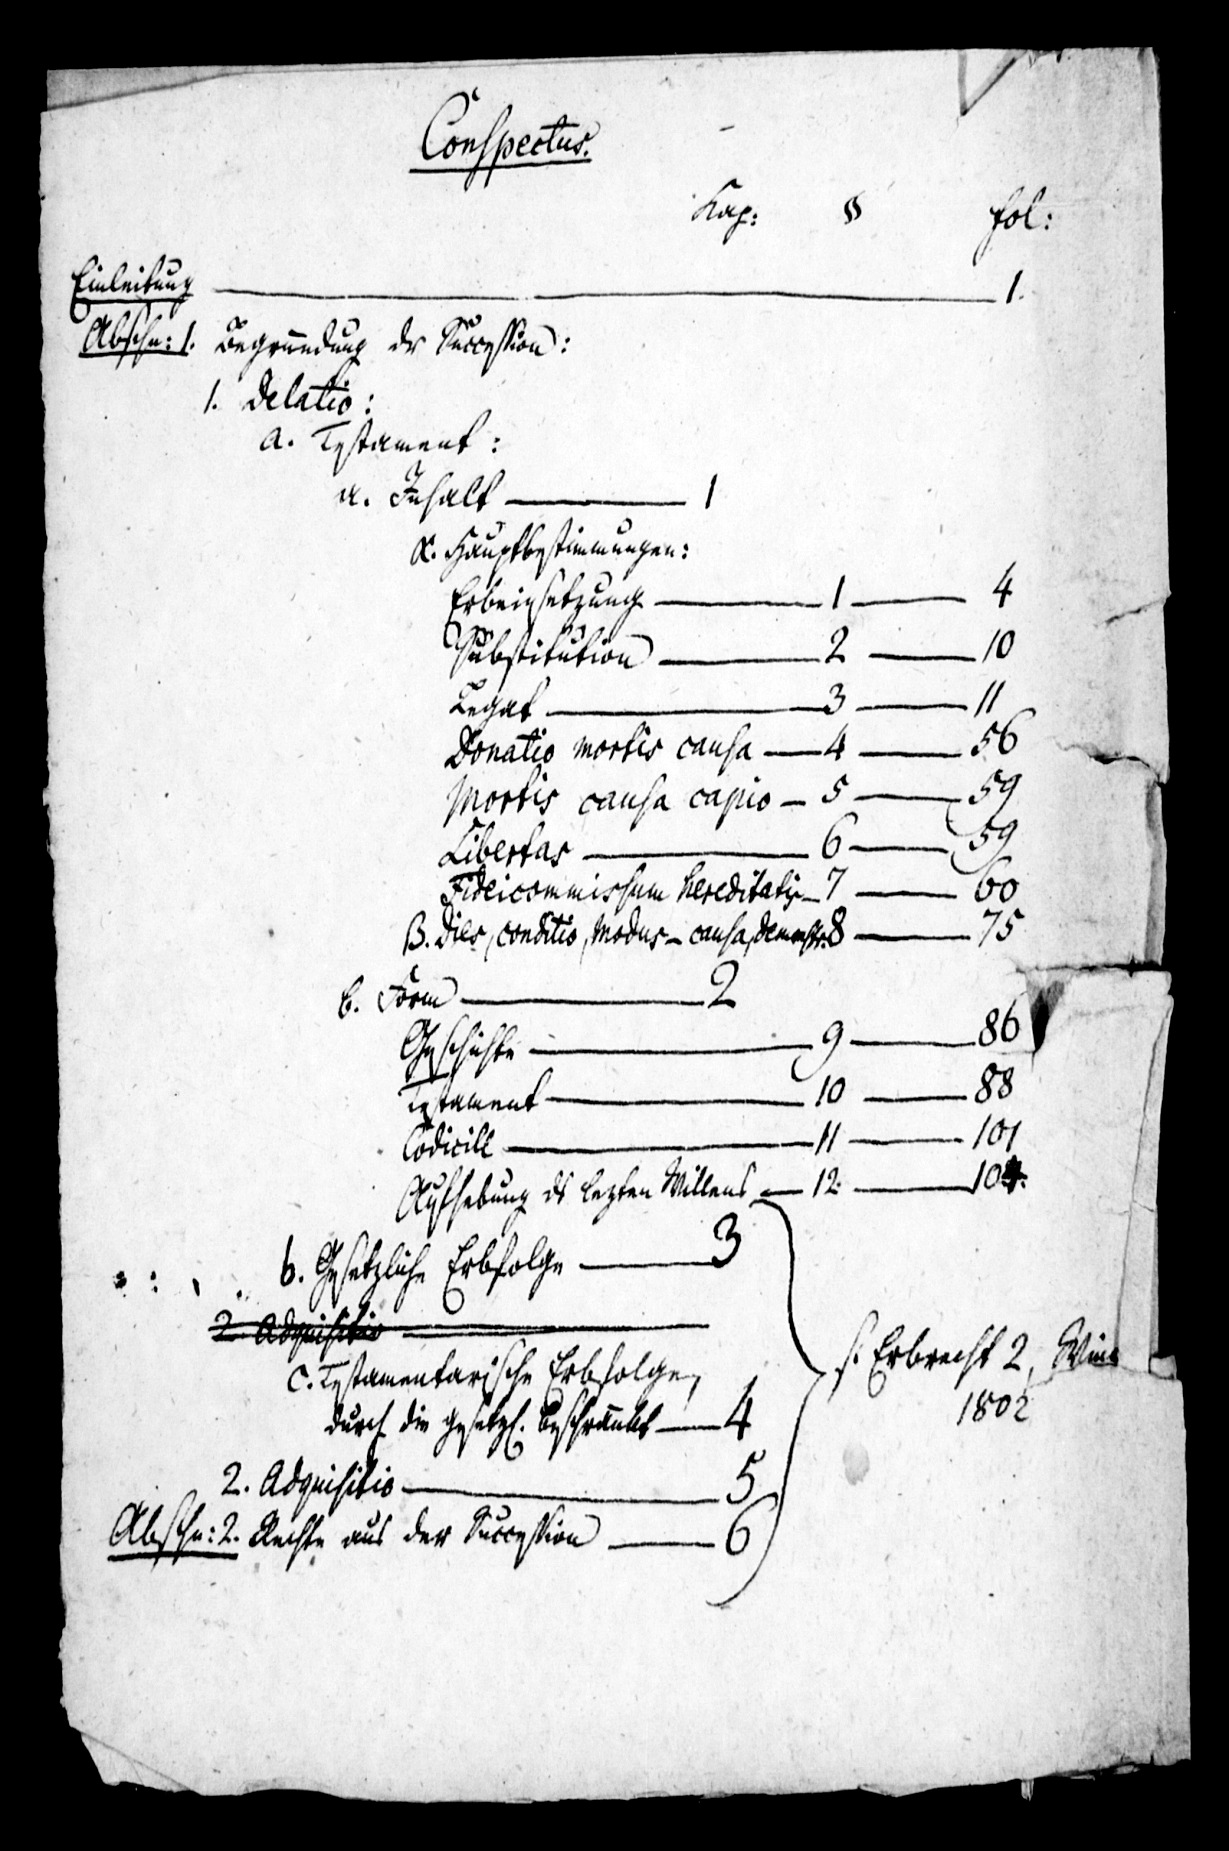 Conspectus.
Kap: §§ fol:
Einleitung — 1.
Abschn: 1. Begründung der Succession:
1. Delatio:
A. Testament:
a. Inhalt — 1
α. Hauptbestimmungen:
Erbeinsetzung — 1 — 4
Substitution — 2 — 10
Legat — 3 — 11
Donatio mortis causa — 4 — 56
Mortis causa capio — 5 — 59
Libertas — 6 — 59
Fideicommissum hereditatis — 7 — 60
β. dies, conditio, modus — causa, demonstr. 8 — 75
b. Form — 2
Geschichte — 9 — 86
Testament — 10 — 88
Codicill — 11 — 101
Aufhebung ds lezten Willens — 12. — 104.
b. Gesetzliche Erbfolge — 3
2. Adquisitio —
c. Testamentarische Erbfolge,
durch die gesetzl. beschränkt — 4
s. Erbrecht 2,
1802
2. Adquisitio — 5
Abschn: 2. Rechte aus der Succession — 6